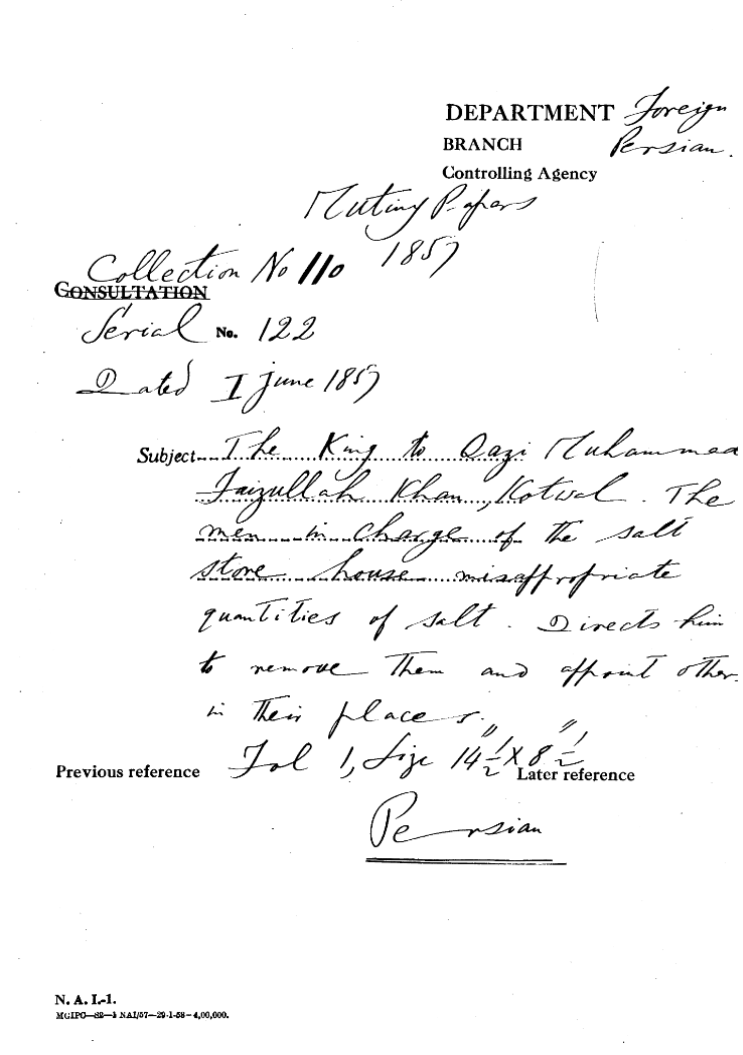 DEPARTMENT Foreign
BRANCH Persian.
Controlling Agency
Mutiny Papers
1857
Collection No 110
CONSULTATION
Serial No. 122
Dated I June 1857
Subject The King to Qazi Muhammad
Faizullah Khan, Kotwal. The
men in charge of the salt
store house misappropriate
quantities of salt. Directs him
to remove them and appoint other
in their places.
Fol 1, Size 14½" X 8½"
Previous reference Later reference
Persian
N. A. I.-1.
MGIPC—S2—3 NAI/57—29-1-58—4,00,000.